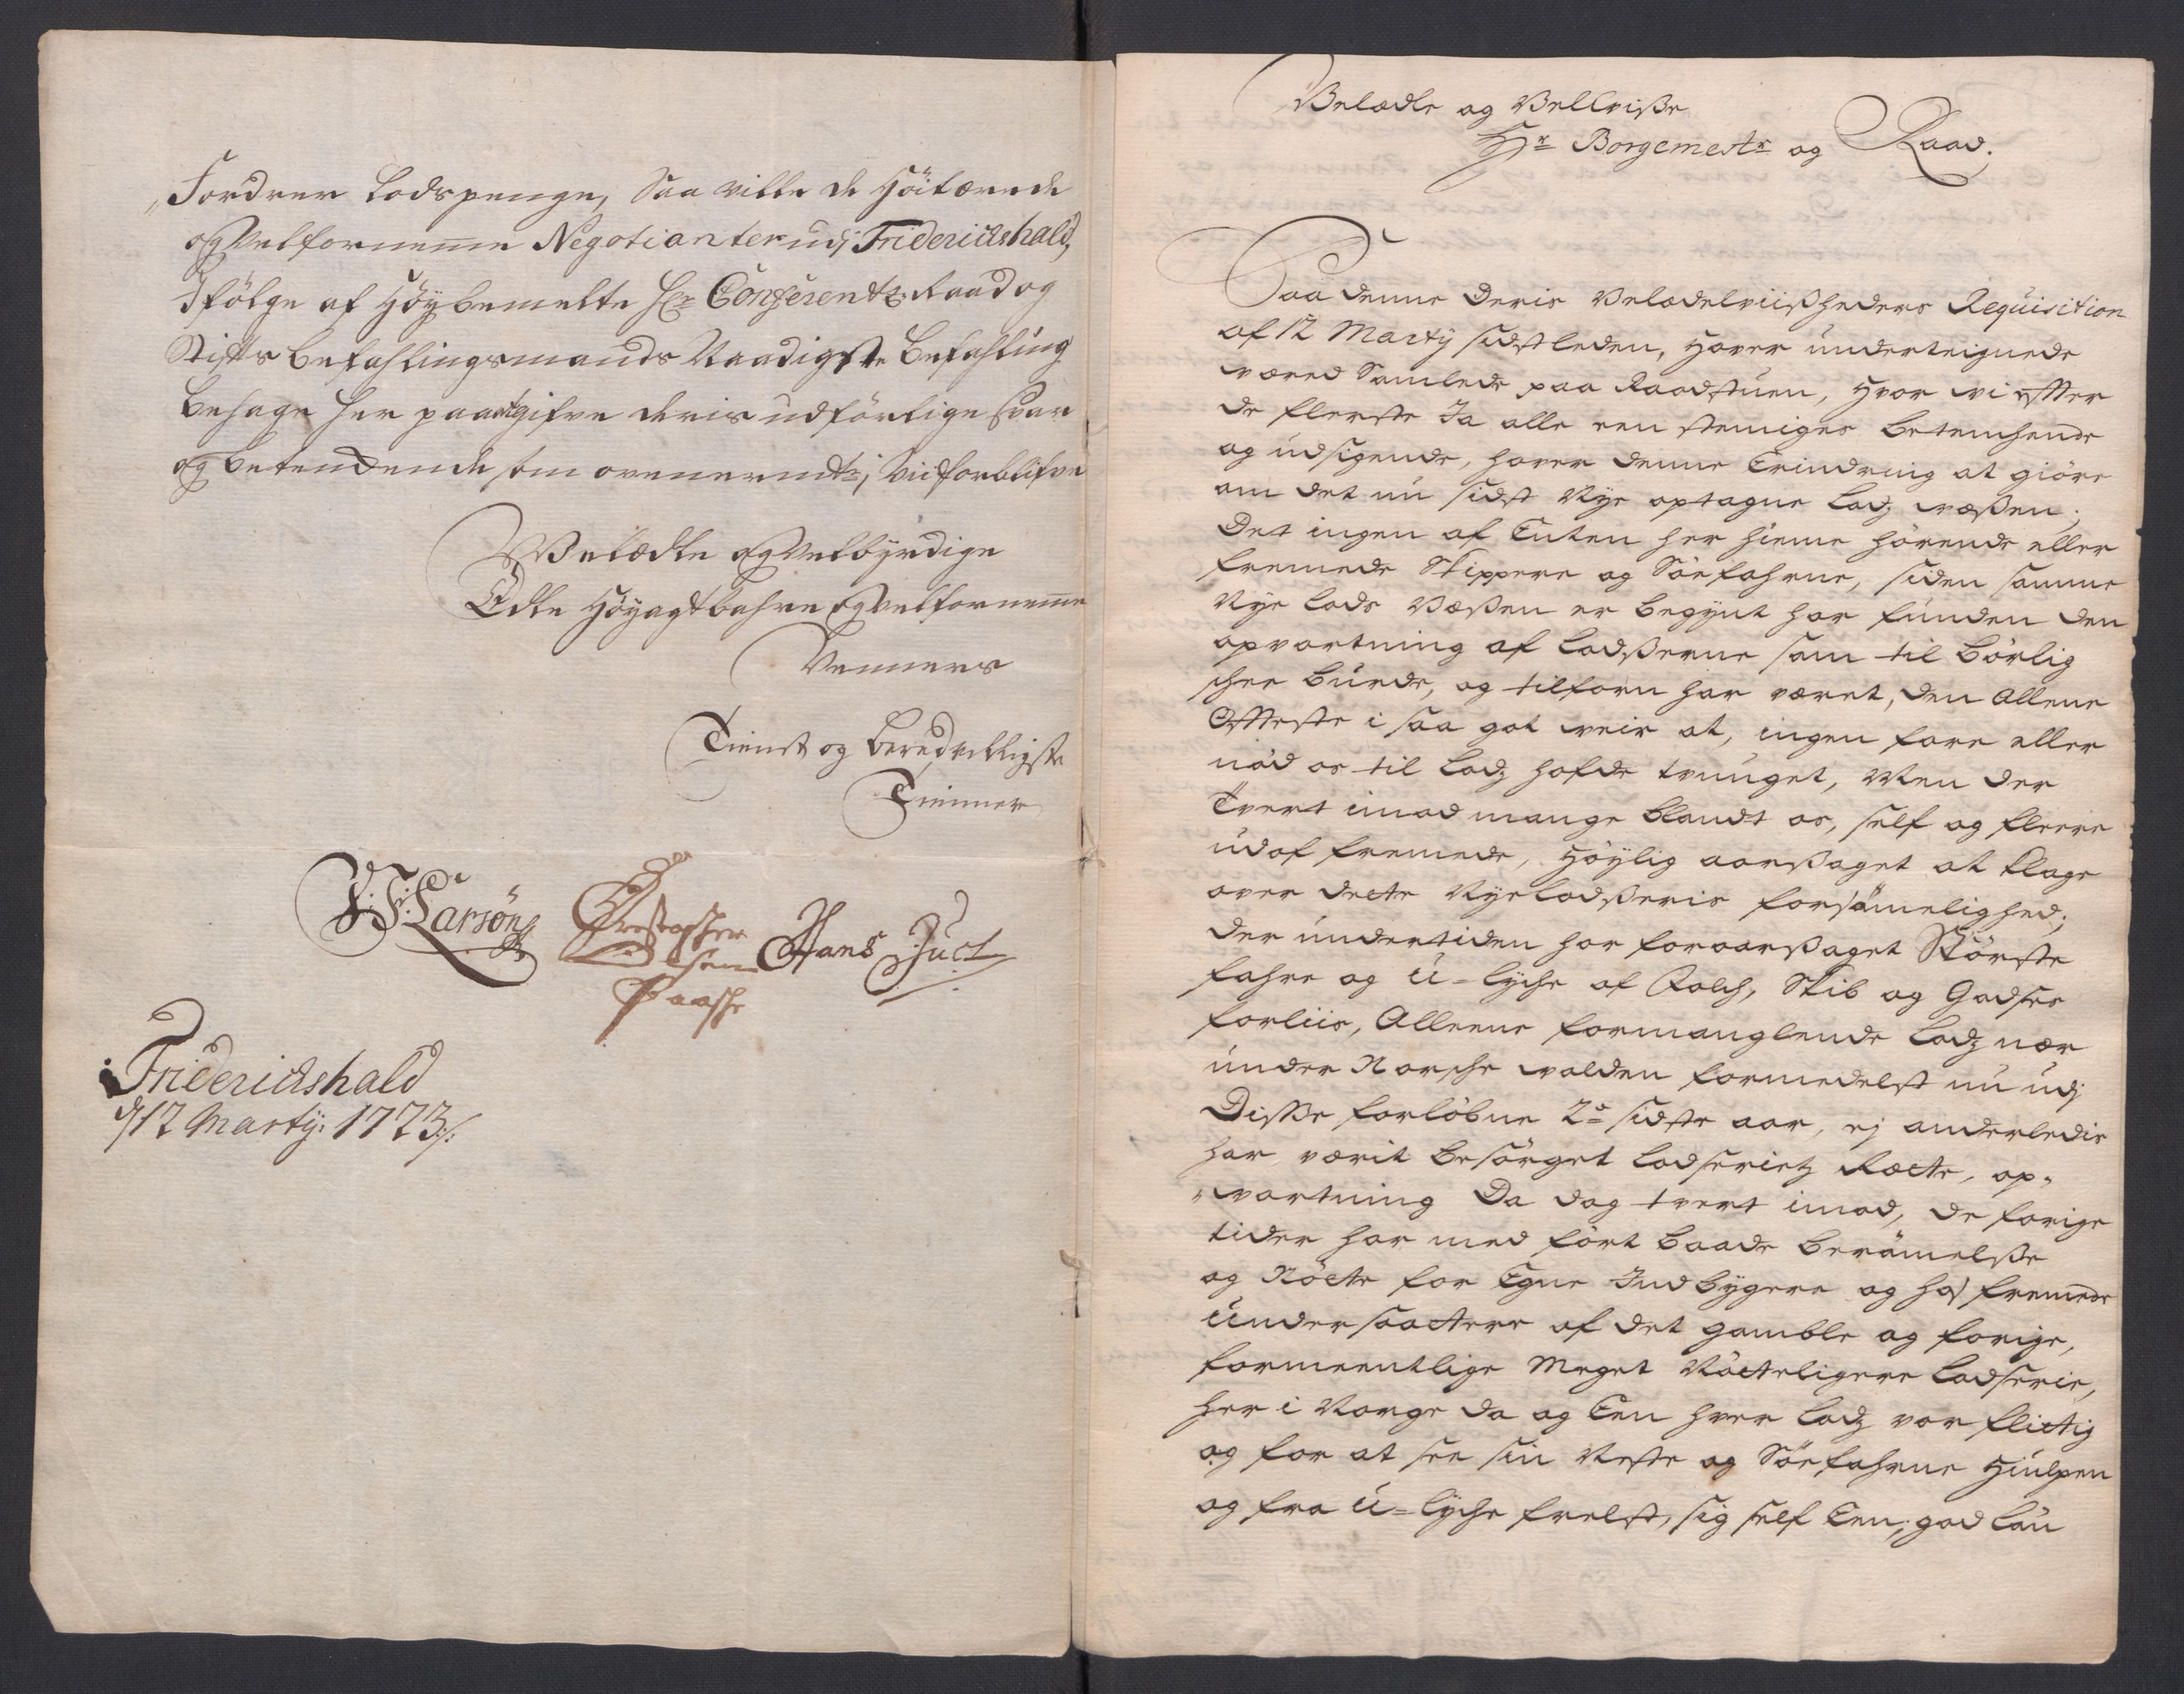 „Fordrer Lodspenge, Saa ville de Höitærede
og Velfornemme Negotianter udj Friderichshald,
Ifölge af Höybemelte Hr Conferentz Raad og
Stifts Befahlingsmands Naadigste Befahling
behage her paa at gifve deris udförlige Svar
og betenckende som ovenermte, Vi forblifve
Velædle og Velbÿrdige
Edle Höyagtbahre og Velfornemme
Venners
Tienst og Beredvilligste
Tienner
Larsön Christopher Hans Juel
Paasche
Friderichshald
d 12 Martÿ: 1723/:
Velædle og Velviise
Hr Borgemestr og Raad.
Paa denne Deris Velædelviished​ers Requisition
af 12 Martÿ sidstleden, Hafer underteignede
været Samlede paa Raadstuen, Hvor vi effter
de fleeste Ja alle eenstemiges betenchende
og udsigende, hafer denne Erindring at giöre
om det nu sidst Nÿe optagne Lodz væsen;
Det ingen af Enten her hieme hörende eller
fremede Skippere og Söefahrne, siden samme
Nÿe Lods Væsen er begÿnt har funden den
opvartning af Lodserne som til börlig
schee burde, og tilforn har været, den Allene
Offteste i saa got veir at, ingen fare eller
nöd os til Lodz hafde tvunget, Men der
Tvert imod mange blandt os, self og fleere
udaf fremede, Höÿlig aarsaget at klage
over dette Nÿe Lodseris forsömelighed;
der undertiden har foraarsaget Störste
fahre og u-lÿche af Folch, Skib og Godses
forliis, Alleene formanglende Lodz nær
under Norsche volden formedelst nu udj
Disse forlöbne 2de sidste aar, ej anderledis
har værit besörget Lodserietz Rætte, op„
„vartning Da dog tvert imod, de forige
tider har med fört baade berömelse
og Nötte for Egne Indbÿgere og hos fremede
Undersaattere af det gamble og forige,
formeentlige Meget Nötteligere Lodserie,
her i Norge da og Een hver Lodz var flittig
og for at see sin Neste og Söefahrne Hiulpen
og fra U-lÿche frelst, sig self Een, god Lön